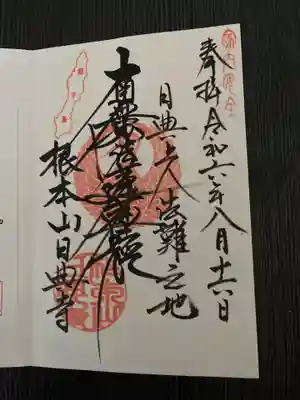 奉拝 令和六年八月十六日
日典上人法難之地
南無妙法蓮華経
根本山日典寺
種子島